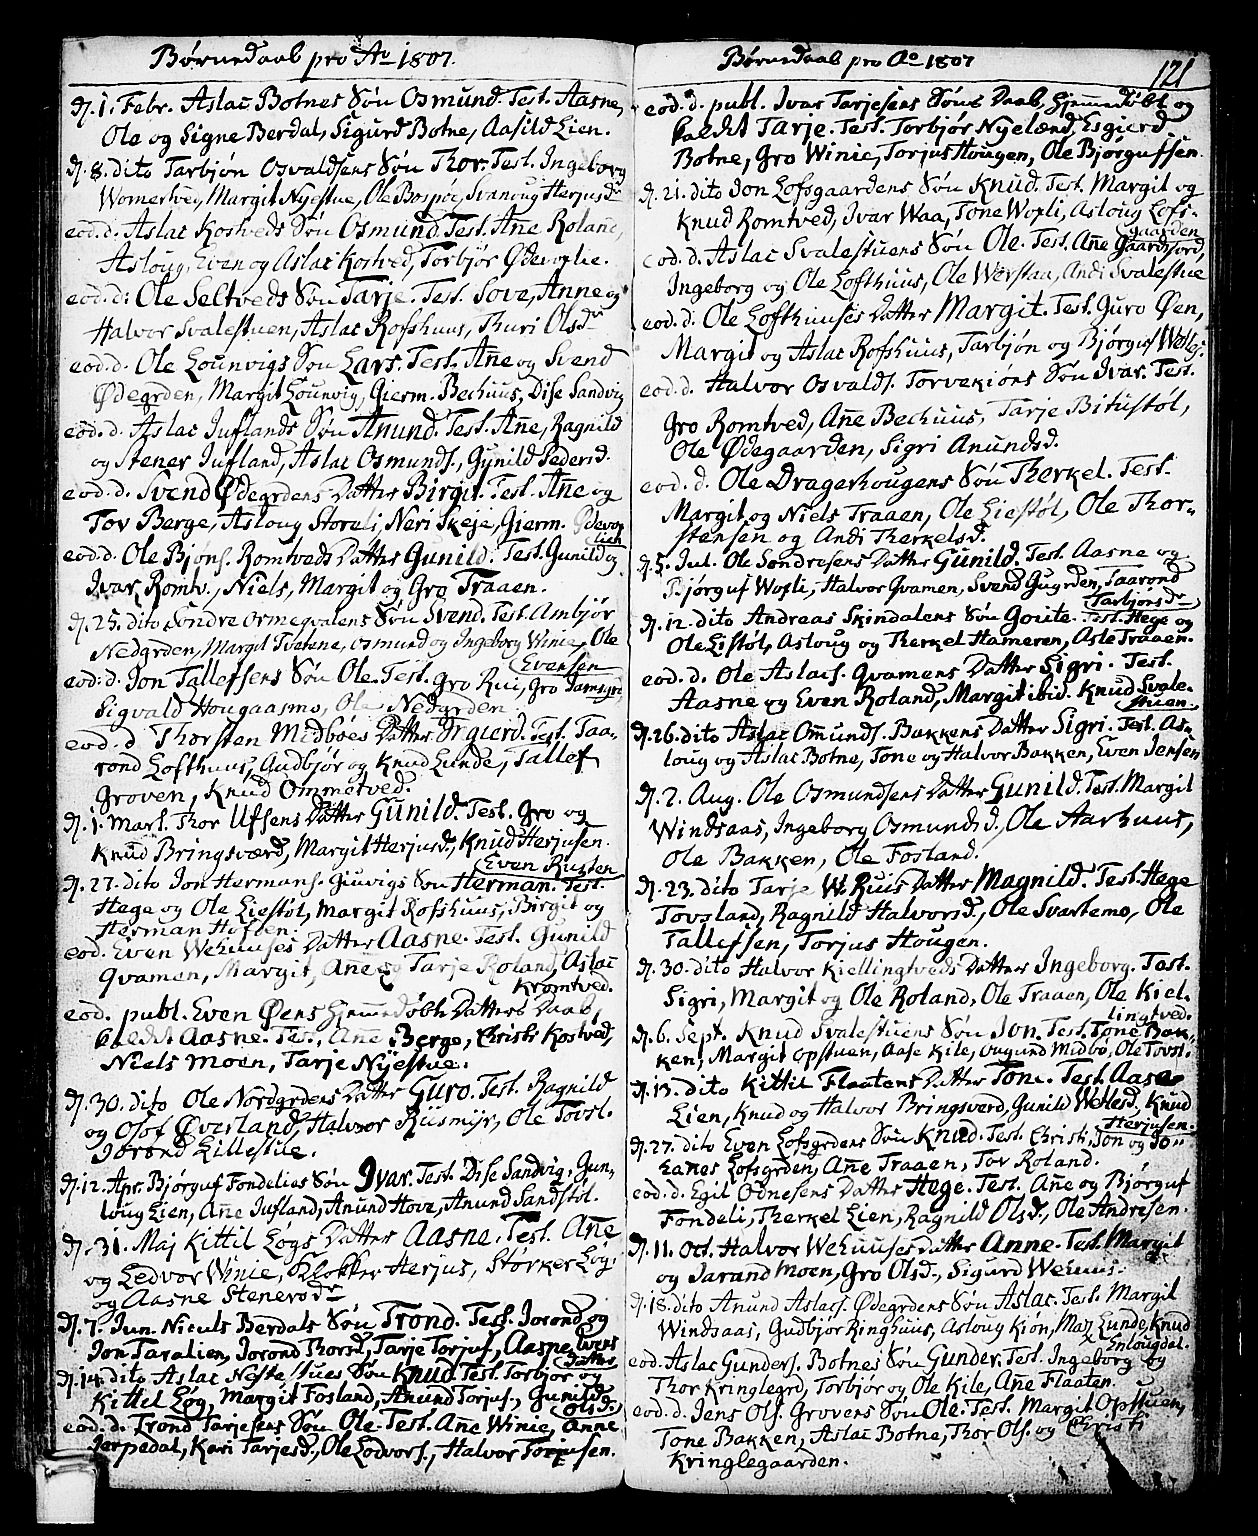 Børnedaab pro Ao 1807.
D. 1. Febr. Aslac Botnes Søn Osmund. Test. Aasne,
Ole og Signe Berdal, Sigurd Botne, Aasild Lien.
D. 8. dito Tarbjøn Osvaldsens Søn Thor. Test. Ingeborg
Womertvei, Margit Nyestue, Ole Bospoe, Svanoug Herjusdr
eod. d. Aslac Kostveds Søn Osmund. Test. Ane Roland,
Asloug, Even og Aslac Kostved, Torbjør Ødevoplie.
eod. d: Ole Seltveds Søn Tarje. Test. Tove, Anne og
Halvor Svalestuen, Aslac Rofshuus, Thuri Olsdr
eod. d. Ole Lounvigs Søn Lars. Test. Ane og Svend
Ødegrden, Margit Lounvig, Gierm. Bechuus, Dise Sandvig
eod. d. Aslac Juflands Søn Anund. Test. Ane, Ragnild
og Stener Jufland, Aslac Osmunds., Gunild Pedersd.
eod. d. Svend Ødegrdens Datter Birgit. Test. Ane og
Tov Berge, Asloug Storali, Neri Skeje, Gierm. Ødevop
lien
eod. d. Ole Bjøns. Romtveds Datter Gunild. Test. Gunild og
Ivar Romtv., Niels, Margit og Gro Traaen.
D. 25. dito Sondre Ormeqvalens Søn Svend. Test. Ambjør
Nedgrden, Margit Tvetene, Osmund og Ingeborg Winie, Ole
Evensen
eod. d. Jon Tallefsens Søn Ole. Test. Gro Rui, Gro Jamsgrd,
Sigvald Hougaasmo, Ola Nedgrden
eod. d Thorsten Midbøes Datter Ørgierd. Test. Taa-
rond Lofthuus, Gudbjør og Knud Lunde, Tallef
Groven, Knud Ommetved.
D. 1. Mart. Thor Ufsens Datter Gunild. Test. Gro og
Knud Bringsværd, Margit Herjusd., Knud Herjusen.
Even Rusten
D. 27. dito Jon Hermans. Giuvigs Søn Herman. Test.
Hege og Ole Liestøl, Margit Rofshuus, Birgit og
Herman Hoften.
eod. Even Wehuuses Datter Aasne. Test. Gunild
Qvamen, Margit, Ane og Tarje Roland, Aslac
Kromtved.
eod. publ. Even Øens Hjemmedøbte Datters Daab,
kaldt Aasne. Test. Ane Berge, Christi Kostved,
Niels Moen, Tarje Nyestue.
D. 30. dito Ole Nordgrdens Datter Guro. Test. Ragnild
og Olof Øverland, Halvor Riismyr, Ole Tovsl.
Jorond Lillestue.
D. 12. Apr. Bjørguf Fondelias Søn Ivar. Test. Dise Sandvig, Gun-
loug Lien, Ane Jufland, Anund Hove, Anund Sandstøl.
D. 31. Maj Kittil Løgs Datter Aasne. Test. Ane
og Ledvor Winie, Klokker Herjus, Størker Løg.
og Aasne Stenersdr
D. 7. Jun. Niculs Berdals Søn Trond. Test. Jorond og
Jon Taralien, Jorond Thorsd., Tarje Torjus., Aasne Ivers
Datter
D. 14. dito Aslac Nestestues Søn Knud. Test. Torbjør og
Kittel Løg, Margit Fosland, Anund Torjus., Gunild
Olsd.
eod. d. Trond Tarjesens Søn Ole. Test. Ane Winie, Anne
Jerpedal, Kari Tarjesd., Ole Lodvors., Halvor Torjusen.
Børnedaab pro Ao 1807
121
eod. d. publ. Ivar Tarjesens Søns Daab, Hjemmedøbt og
kaldt Tarje. Test. Torbjør Nyelænd, Esgierd
Botne, Gro Winie, Torjus Hougen, Ole Bjørgufsen.
D. 21. dito Jon Lofsgaardens Søn Knud. Test. Margit og
Knud Romtved, Ivar Waa, Tone Woxli, Asloug Lofs-
gaarden
eod. d. Aslac Svalestuens Søn Ole. Test. Ane Gaardsjord,
Ingeborg og Ole Lofthuus, Ole Werstaa, Andi Svalestue
eod. d: Ole Lofthuuses Datter Margit. Test. Guro Øen,
Margit og Aslac Rofshuus, Tarbjøn og Bjørguf
eod. d. Halvor Osvalds. Torvekiøns Søn Ivar. Test.
Gro Romtved, Ane Bechuus, Tarje Bitustøl,
Ole Ødegaarden, Sigri Anundsd.
eod. d. Ole Dragerhougens Søn Therkel. Test.
Margit og Niels Traaen, Ole Liestøl, Ole Thor-
stensen og Andi Therkelsd.
D. 5. Jul. Ole Sondresens Datter Gunild. Test. Aasne og
Bjørguf Woxli, Halvor Qvamen, Svend Gugrden, Taarond
Tarbjønsdr
D. 12. dito Andreas Skindalens Søn Goute. Test. Hege og
Ole Listøl, Asloug og Therkel Hameren, Asle Traaen.
eod. d. Ole Aslacs. Qvamens Datter Sigri. Test.
Aasne og Even Roland, Margit ibid. Knud Svale-
stuen.
D. 26. dito Aslac Omunds. Bakkens Datter Sigri. Test. As-
loug og Aslac Botne, Tone og Halvor Bakken, Even Jensen
D. 2. Aug. Ole Osmundsens Datter Gunild. Test. Margit
Windsaas, Ingeborg Osmundsd., Ole Aarhuus,
Ole Bakken, Ole Fosland.
D. 23. dito Tarje W. Ruis Datter Magnild. Test. Hege
Tovsland, Ragnild Halvorsd., Ole Svartemo, Ole
Tallefsen, Torjus Hougen.
D. 30. dito Halvor Kiellingtveds Datter Ingeborg. Test.
Sigri, Margit og Ole Roland, Ole Traaen, Ole Kiel-
lingtved.
D. 6. Sept. Knud Svalestuens Søn Jon. Test. Tone Bak-
ken, Margit Opstuen, Aase Kile, Augund Midbø, Ole Tovsl.
D. 13. dito Kittil Flaatens Datter Tone. Test. Aase
Lien, Knud og Halvor Bringsverd, Gunild Wetlesd., Knud
Herjusen.
D. 27. dito Even Lofsgrdens Søn Knud. Test. Christi, Jon og Jo-
hanes Lofsgrden, Ane Traaen, Tov Roland.
eod. d. Egil Odnesens Datter Hege. Test. Ane og Bjørguf
Fondeli, Therkel Lien, Ragnild Olsd., Ole Andresen.
D. 11. Oct. Halvor Wehuuses Datter Anne. Test. Margit
og Jarand Moen, Gro Olsd., Sigurd Wehuus.
D. 18. dito Anund Aslacs. Ødegrdens Søn Aslac. Test. Margit
Windsaas, Gudbjør Ringhuus, Asloug Kion, Marj Lunde, Knud
Enlougdal.
eod. Aslac Gunders. Botnes Søn Gunder. Test. Ingeborg og
Thor Kringlegrd, Torbjør og Ole Kile, Ane Flaaten.
eod. d. Jens Ols. Grovens Søn Ole. Test. Margit Opstuen,
Tone Bakken, Aslac Botne, Thor Ols. og Christi
Kringlegaarden.